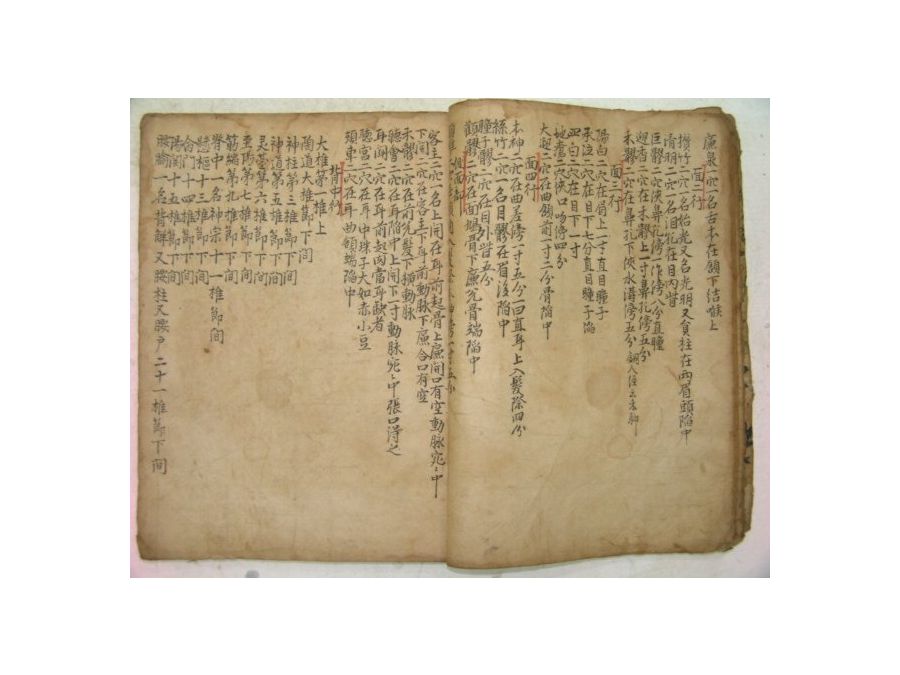 廉泉一穴一名舌本在頷下結喉上
面二行
攢竹二穴一名始光又名光明又員柱在兩眉頭陷中
睛明二穴一名淚孔在目內眥
巨髎二穴俠鼻孔傍一作傍八分直瞳
迎香二穴在禾髎上一寸鼻孔傍五分
禾髎二穴在鼻孔下俠水溝傍五分
面三行
陽白二穴在眉上一寸直目瞳子
承泣二穴在目下七分直目瞳子陷
四白二穴在目下一寸
地倉二穴俠口吻傍四分
大迎二穴在曲頷前一寸二分骨陷中
面四行
本神二穴在曲差傍一寸五分一曰直耳上入髮際四分
絲竹二穴一名目髎在眉後陷中
瞳子髎二穴在目外眥五分
顴髎二穴在面頄骨下廉兌骨端陷中
客主二穴一名上関在耳前起骨上廉開口有空動脉宛〻中
下関二穴在客主下耳前動脉下廉合口有空
禾髎二穴在前兌髮下橫動脉
聽會二穴在耳陷中上関下一寸動脉宛〻中張口淂之
耳門二穴在耳前起肉當耳缺者
聽宮二穴在耳中珠子大如赤小豆
頰車二穴在耳曲頷端陷中
背中行
大椎第一椎上
陶道大椎節下间
神柱第三椎節下间
神道第五椎節下间
灵臺第六椎節下间
至陽第七椎節下间
筋縮第九椎節下间
脊中一名神宗十一椎節间
懸樞十三椎節下间
命門十四椎節下间
陽関十五椎節下间
腰腧一名背解又腰柱又腰户二十一椎節下间